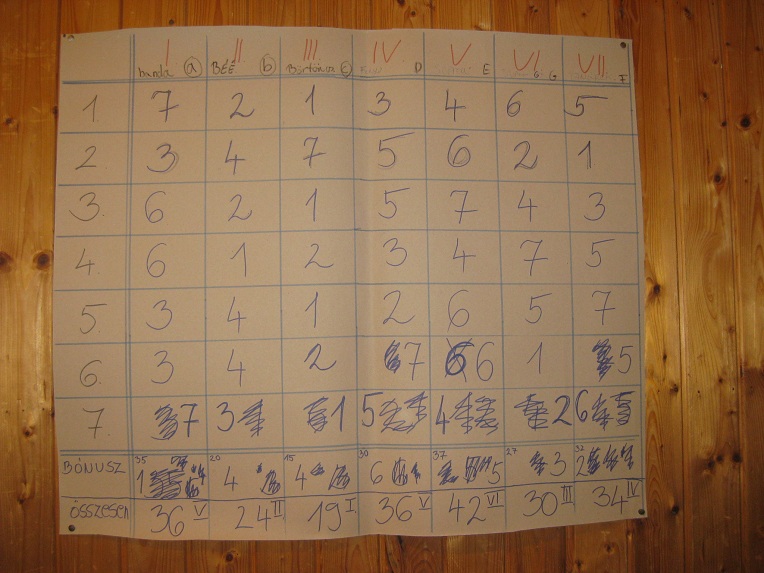 I II III IV V VI VII
banda a BÉÉ b Börtönca C D E G F
1 7 2 1 3 4 6 5
2 3 4 7 5 6 2 1
3. 6 2 1 5 7 4 3
4. 6 1 2 3 4 7 5
5. 3 4 1 2 6 5 7
6. 3 4 2 7 6 1 5
7. 7 3 1 5 4 2 6
35 20 15 30 37 27 32
BÓNUSZ 1 4 4 6 5 3 2
ÖSSZESEN 36 V 24 II 19 I 36 V 42 VI 30 III 34 IV